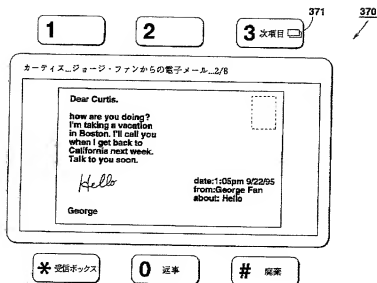 371
370
1
2
3 次項目
カーティス...ジョージ・ファンからの電子メール...2/8
Dear Curtis.
how are you doing?
I'm taking a vacation
in Boston. I'll call you
when I get back to
California next week.
Talk to you soon.
Hello
George
date:1:05pm 9/22/95
from:George Fan
about: Hello
* 受信ボックス
0 返事
# 廃棄